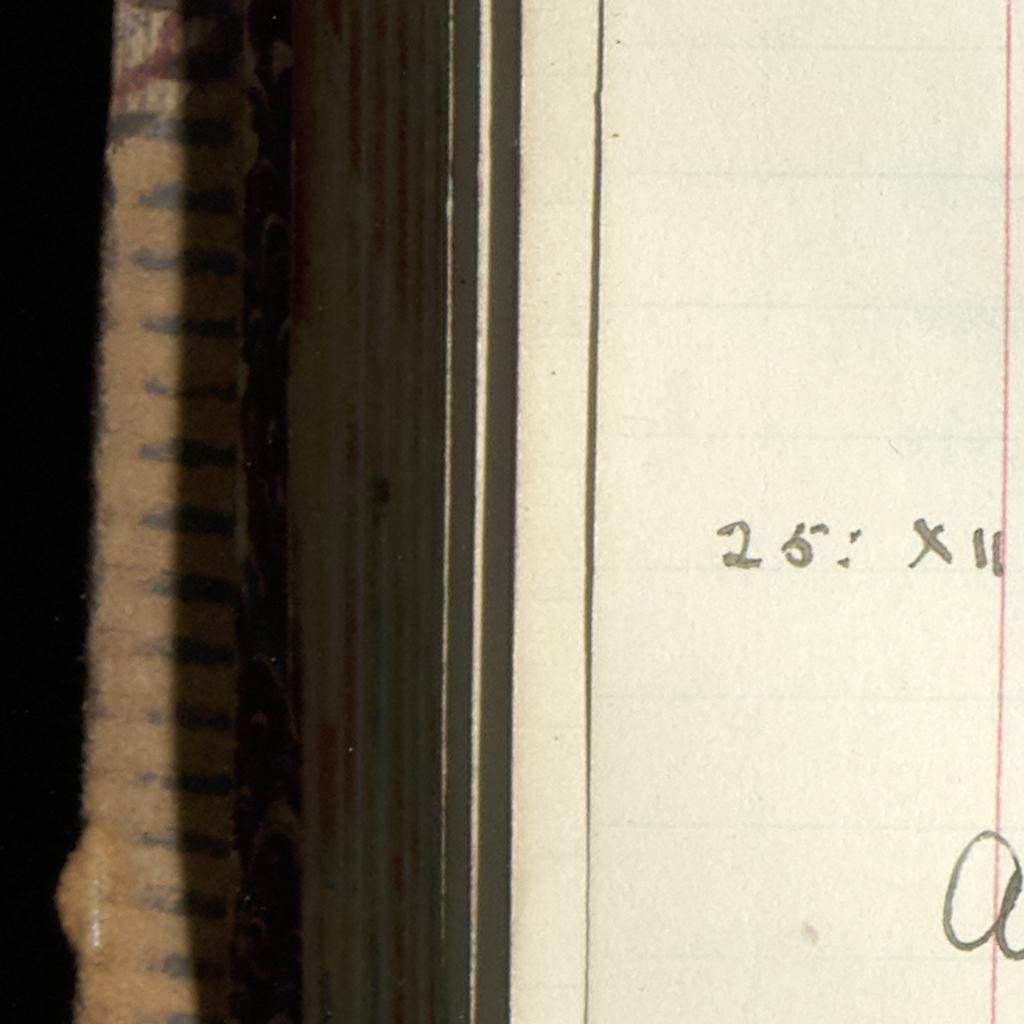 25: XII
a